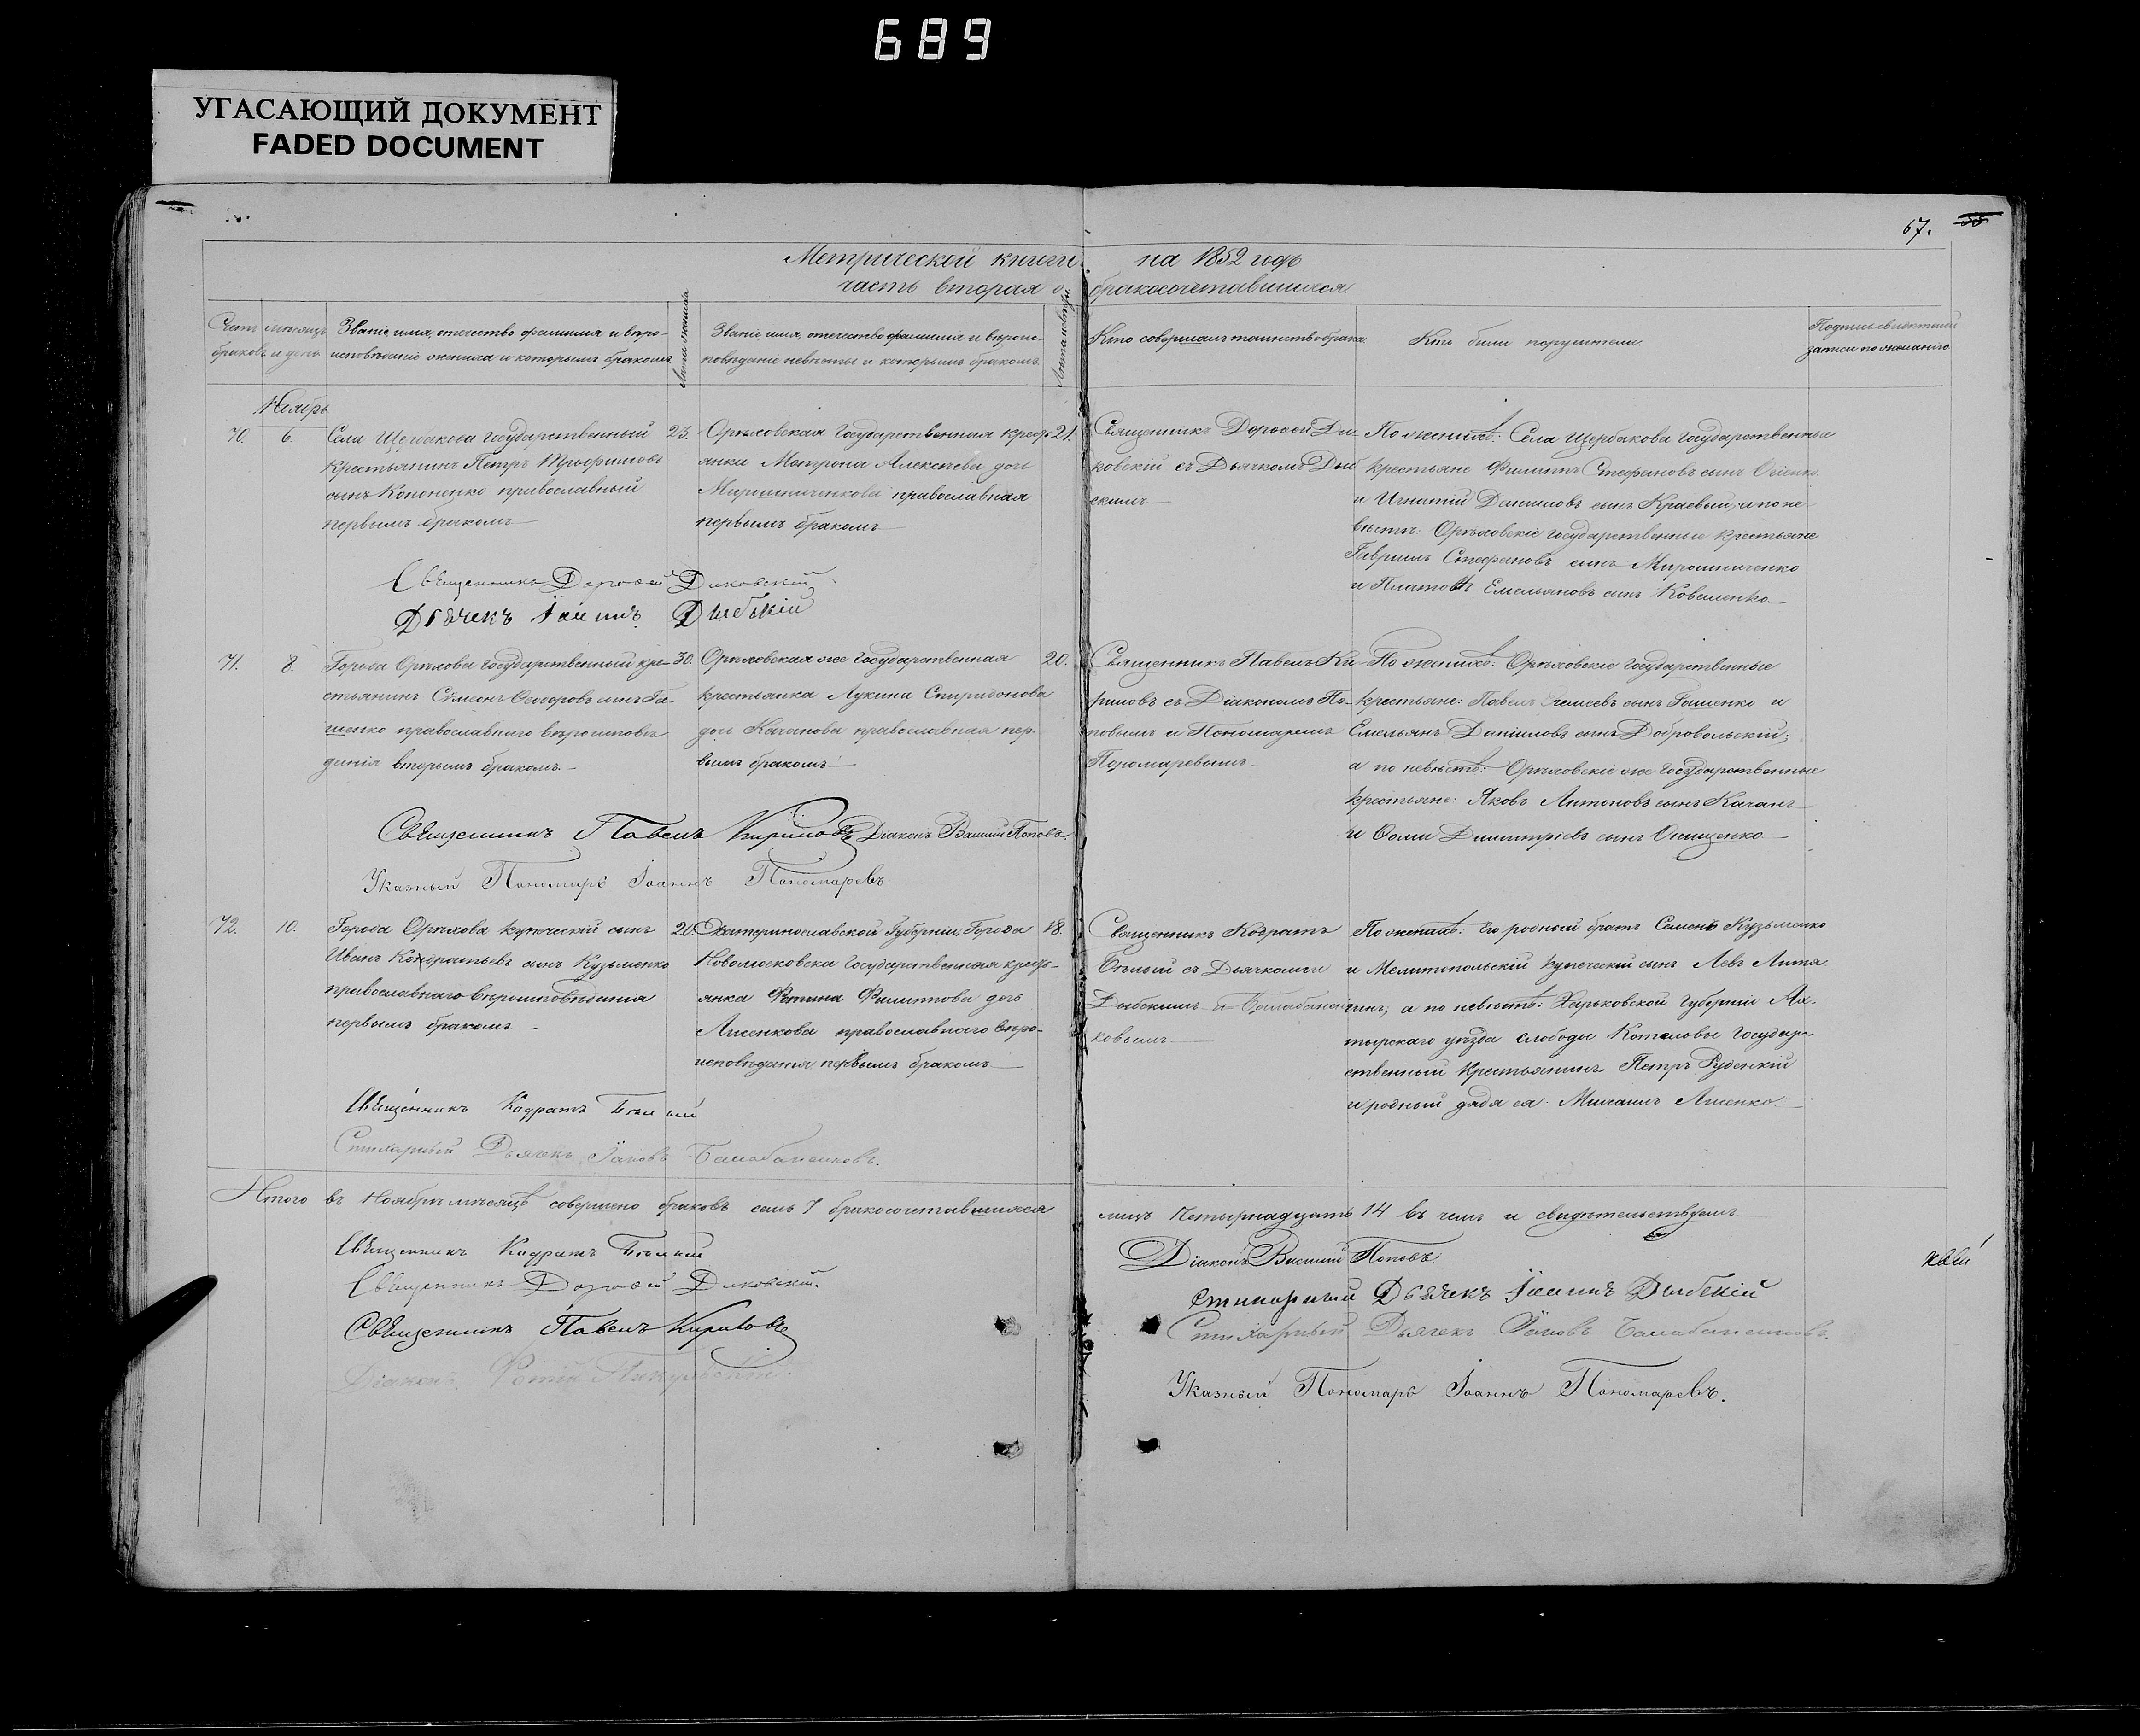 689
УГАСАЮЩИЙ ДОКУМЕНТ
FADED DOCUMENT
67.
Метрической книги на 1852 годъ
часть вторая о бракосочетавшихся
Счетъ браковъ
мѣсяцъ и день
Званіе, имя, отечество, фамилія и вѣро-
исповѣданіе жениха и которымъ бракомъ
Лѣта жениха
Званіе, имя, отечество фамилія и вѣроис-
повѣданіе невѣсты и которымъ бракомъ
Лѣта невѣсты
Кто совершалъ таинство брака
Кто были поручители.
Подпись свидѣтелей
записи по желанію
Ноябрь
70.
6.
Села Щербакова государственный
крестьянинъ Петръ Трофимовъ
сынъ Кононенко православный
первымъ бракомъ
23.
Орѣховская государственная кресть-
янка Матрона Алексѣева дочь
Мирошниченкова православная
первымъ бракомъ
21.
Священникъ Дорофей Ди-
ковскій съ Дьячкомъ Дыб
скимъ
По женихѣ: Села Щербакова государственные
крестьяне Филиппъ Стефановъ сынъ
и Игнатій Даниловъ сынъ Краевый; а по не-
вѣстѣ: Орѣховскіе государственные крестьяне
Гавріилъ Стефановъ сынъ Мирошниченко
и Платонъ Емельяновъ сынъ Коваленко.
Священникъ Дорофей Диковскій
Дьячекъ Іоаннъ Дыбскій
71.
8.
Города Орѣхова государственный кре-
стьянинъ Сѵмеонъ Ѳеодоровъ сынъ Га-
шенко православнаго вѣроисповѣ
данія вторымъ бракомъ.
30.
Орѣховская же государственная
крестьянка Лукина Спиридонова
дочь Качанова православная пер-
вымъ бракомъ
20.
Священникъ Павелъ Ки
риловъ съ Діакономъ По-
повымъ и Пономаремъ
Пономаревымъ
По женихѣ: Орѣховскіе государственные
крестьяне: Павелъ сынъ Гашенко и
Емельянъ Даніиловъ сынъ Добровольскій;
а по невѣстѣ: Орѣховскіе же государственные
крестьяне: Яковъ Антоновъ сынъ Качанъ
и Ѳома Димитріевъ сынъ Онищенко
Священникъ Павелъ Кириловъ Діаконъ Василій Поповъ.
Указный Пономарь Іоаннъ Пономаревъ
72.
10.
Города Орѣхова купеческій сынъ
Иванъ Кондратьевъ сынъ Кузьменко
православнаго вѣроисповѣданія
первымъ бракомъ
20.
Екатеринославской Губерніи Города
Новомосковска государственная кресть-
янка Фотина Филиппова дочь
Лисенкова православнаго вѣро-
исповѣданія первымъ бракомъ
18.
Священникъ Кодратъ
Бѣлый съ Дьячками
Дыбскимъ и Балабанен
ковымъ
По женихѣ: Его родный братъ Семенъ Кузьменко
и Мелитопольскій купеческій сынъ Левъ Литя
гинъ; а по невѣстѣ: Харьковской губерніи Ах-
тырскаго уѣзда слободы Котельвы государ-
ственный крестьянинъ Петръ Руденкій
и родный дядя ея Михаилъ Лисенко.
Священникъ Кодратъ Бѣлый
Стихарный Дьячекъ Іаковъ Балабаненковъ.
Итого въ Ноябрѣ мѣсяцѣ совершено браковъ семь 7 бракосочетавшихся лицъ четырнадцать 14 въ чемъ и свидѣтельствуемъ
Священникъ Кодратъ Бѣлый
Священникъ Дорофей Диковскій.
Священникъ Павелъ Кириловъ
Діаконъ
Діаконъ Василій Поповъ.
Стихарный Дьячекъ Іоаннъ Дыбскій
Стихарный Дьячекъ Іаковъ Балабаненковъ.
Указный Пономарь Іоаннъ Пономаревъ.